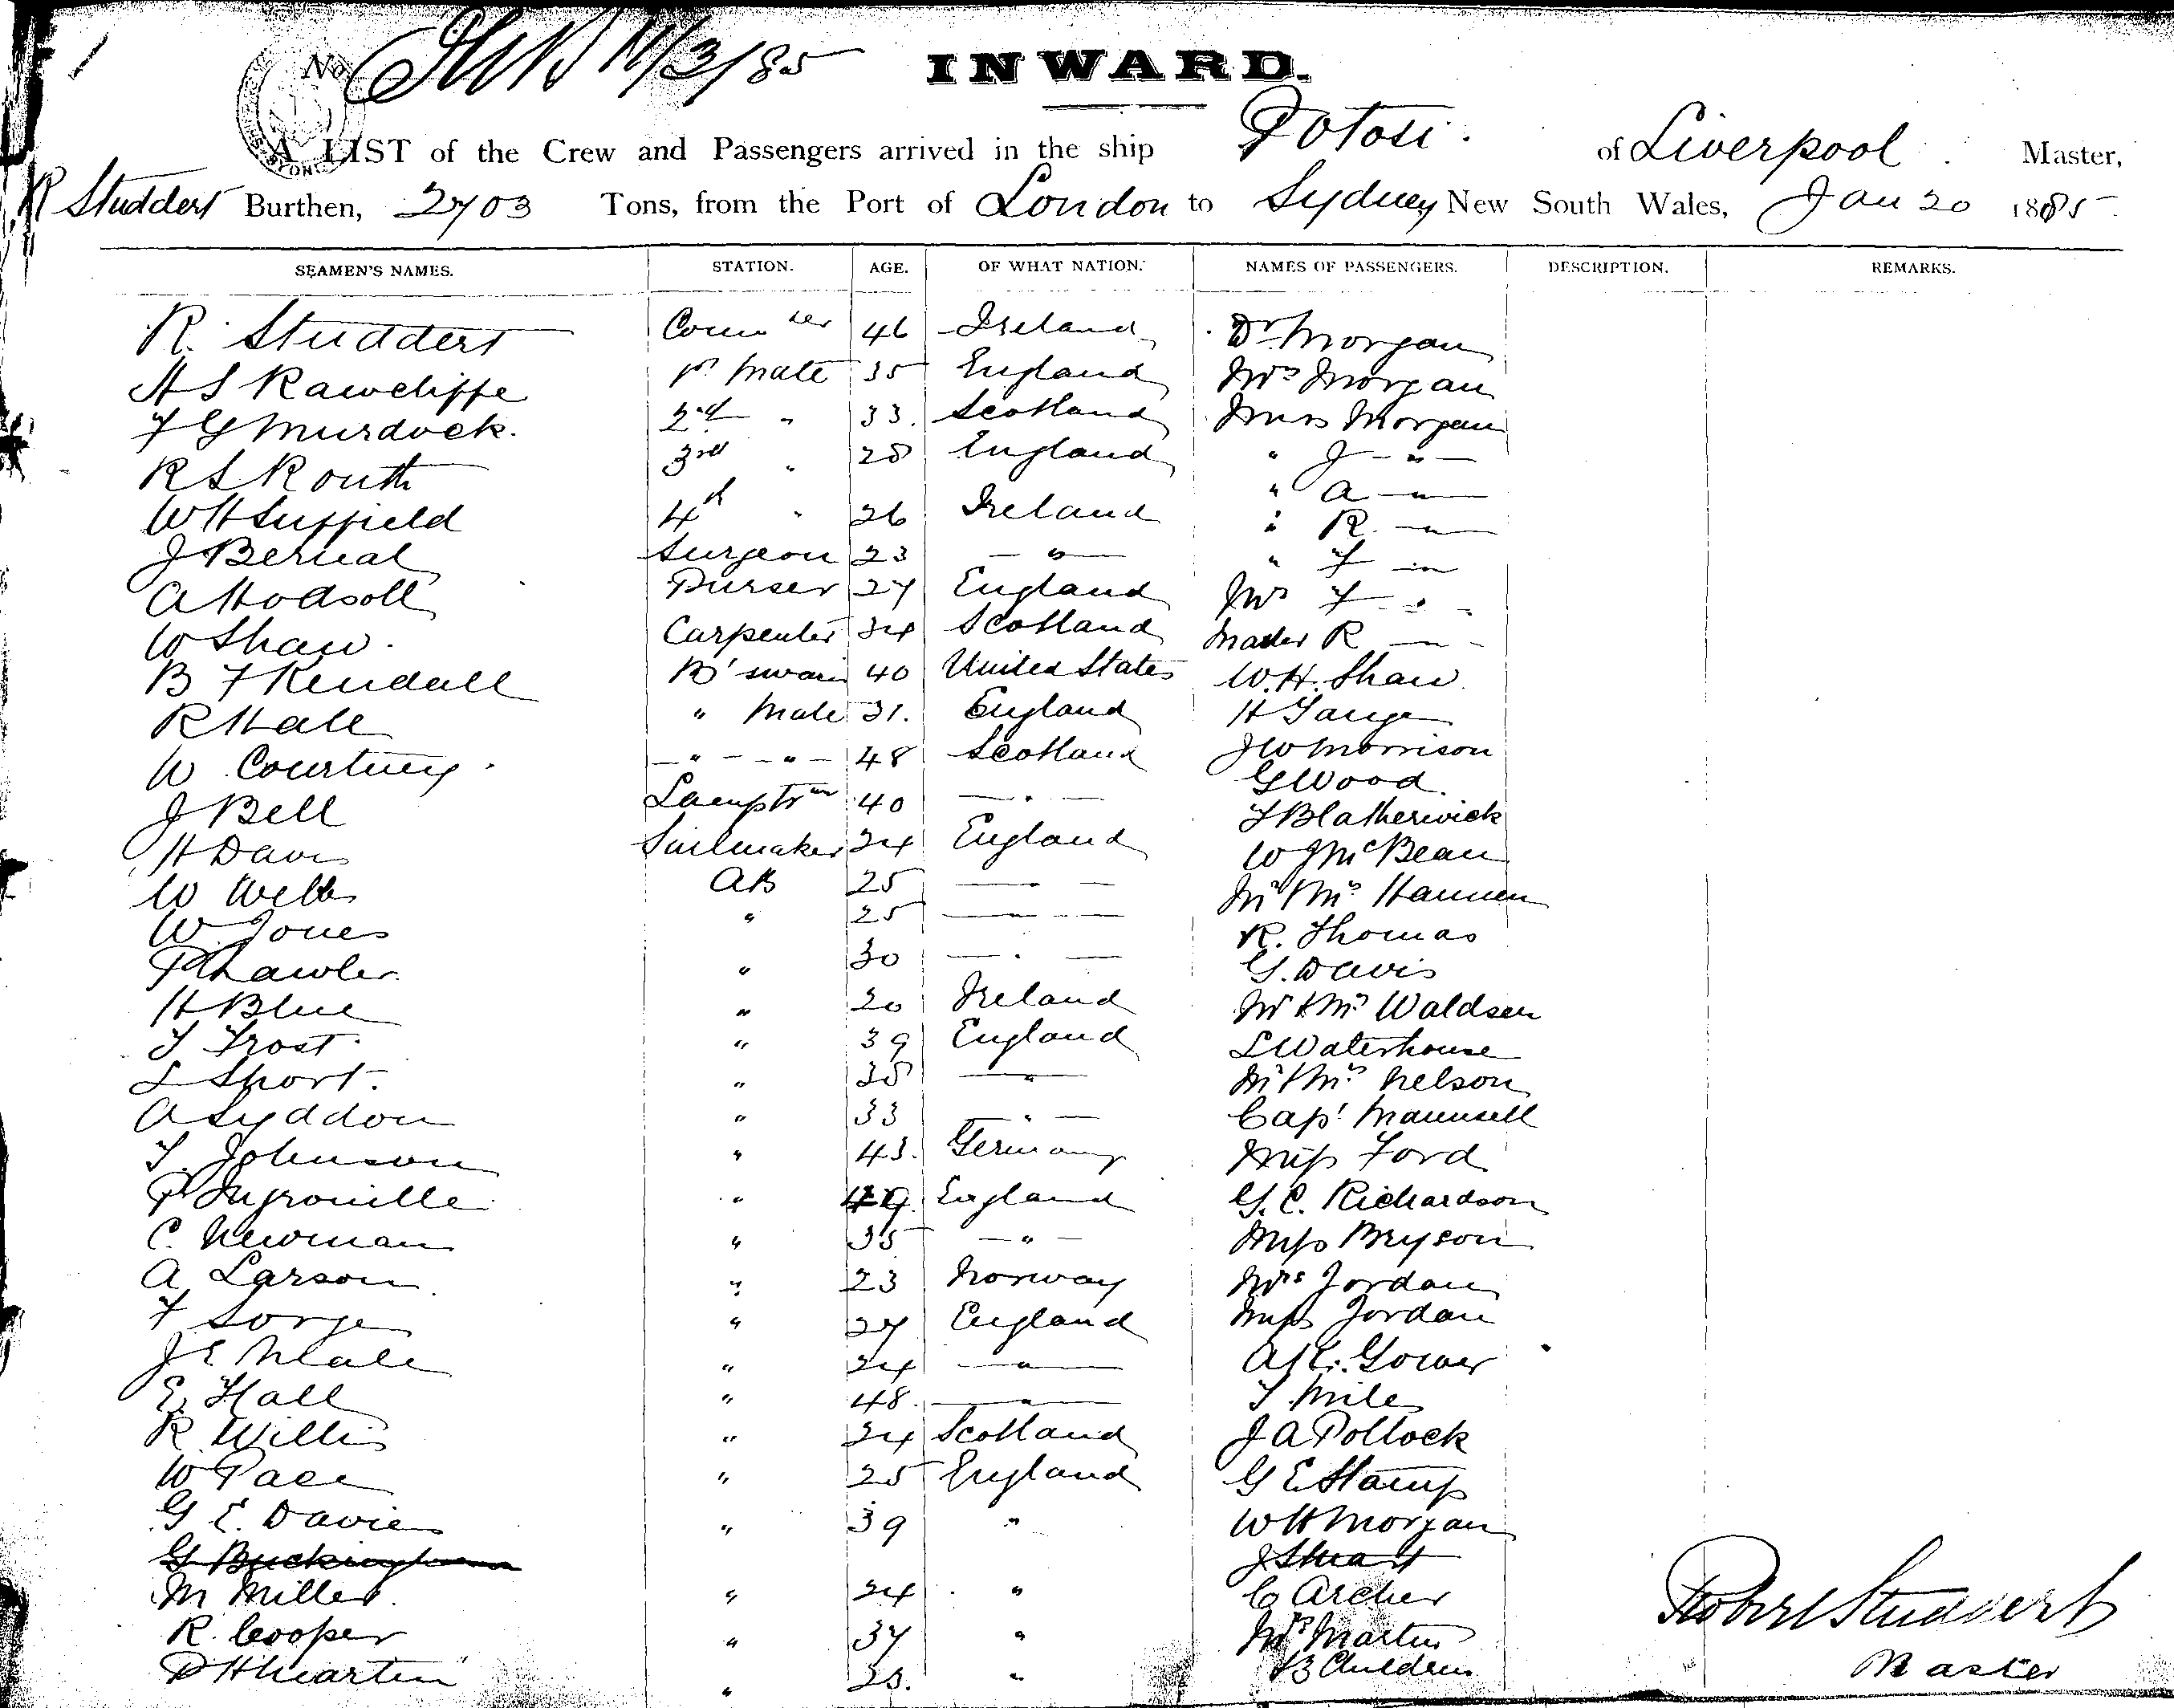 No
14/3/85
INWARD.
A LIST of the Crew and Passengers arrived in the ship Potosi. of Liverpool Master,
R Studdert Burthen, 2703 Tons, from the Port of London to Sydney New South Wales, Jan 20 1885
SEAMEN'S NAMES. STATION. AGE. OF WHAT NATION. NAMES OF PASSENGERS. DESCRIPTION. REMARKS.
R. Studdert 46 Ireland Dr Morgan
H S Rawcliffe 1st Mate 35 England Mrs Morgan
F G Murdock. 2nd " 33. Scotland Miss Morgan
R S Routh 3rd " 28 England " J - " -
W H Suffield 4th " 26 Ireland " A - " -
J Bernal Surgeon 23 - " - " R. - " -
A Hodsoll Purser 27 England " F "
W Shaw. Carpenter 34 Scotland Mr F " -
B F Kendall B'swain 40 United States Master R - " -
R Hall " Mate 31. England W. H. Shaw.
W Courtney - " - - " - 48 Scotland H
J Bell Lamptr 40 - " - J W Morrison
H Davis Sailmaker 24 England G Wood.
W Webb AB 25 - " - F Blatherwick
W. Jones " 25 - " - W J McBean
P Lawler. " 30 - " - Mr & Mrs Hannen
H Blue " 20 Ireland R. Thomas
T Frost. " 39 England G. Davis
S Short. " 38 - " - Mr & Mrs Waldsen
A Lyddon " 33 - " - S Waterhouse
T. Johnson " 43. Germany Mr & Mrs Nelson
P Ingrouille " 49. England Capt Maunsell
C. Newman " 35 - " - Miss Ford
A. Larson " 23 Norway G. C. Richardson
F Sorge " 27 England Miss Bryson
J E Neale " 24 - " - Mrs Jordan
E. Hall " 48. - " - Miss Jordan
R Willis " 24 Scotland Gower
W Pace " 25 England T. Miles
G E. Davies " 39 " J A Pollock
G Buckingham G E Stamp
M Miller. " 24 " W H Morgan
R. Cooper " 37 " J Stuart
P H Martin " 23. " C Archer
Mrs Martin
& 3 Children
Robert Studdert
Master